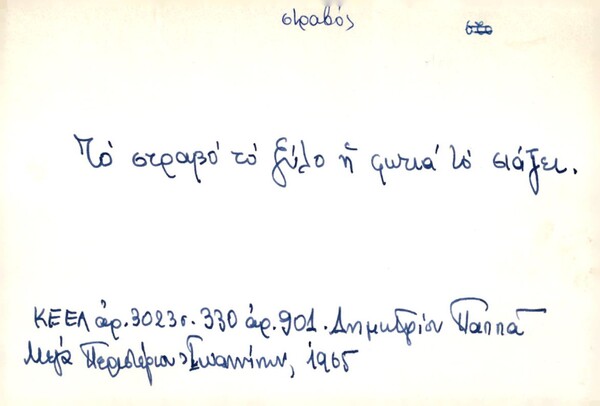 στραβός
Τό στραβό τό ξύλο ἤ φωτιά τό σιάζει.
ΚΕΕΛ ἀρ. 3023 σ. 330 ἀρ. 901. Δημητρίου Παππᾶ
Μεγά Περιστέριον Ἰωαννίνων, 1965